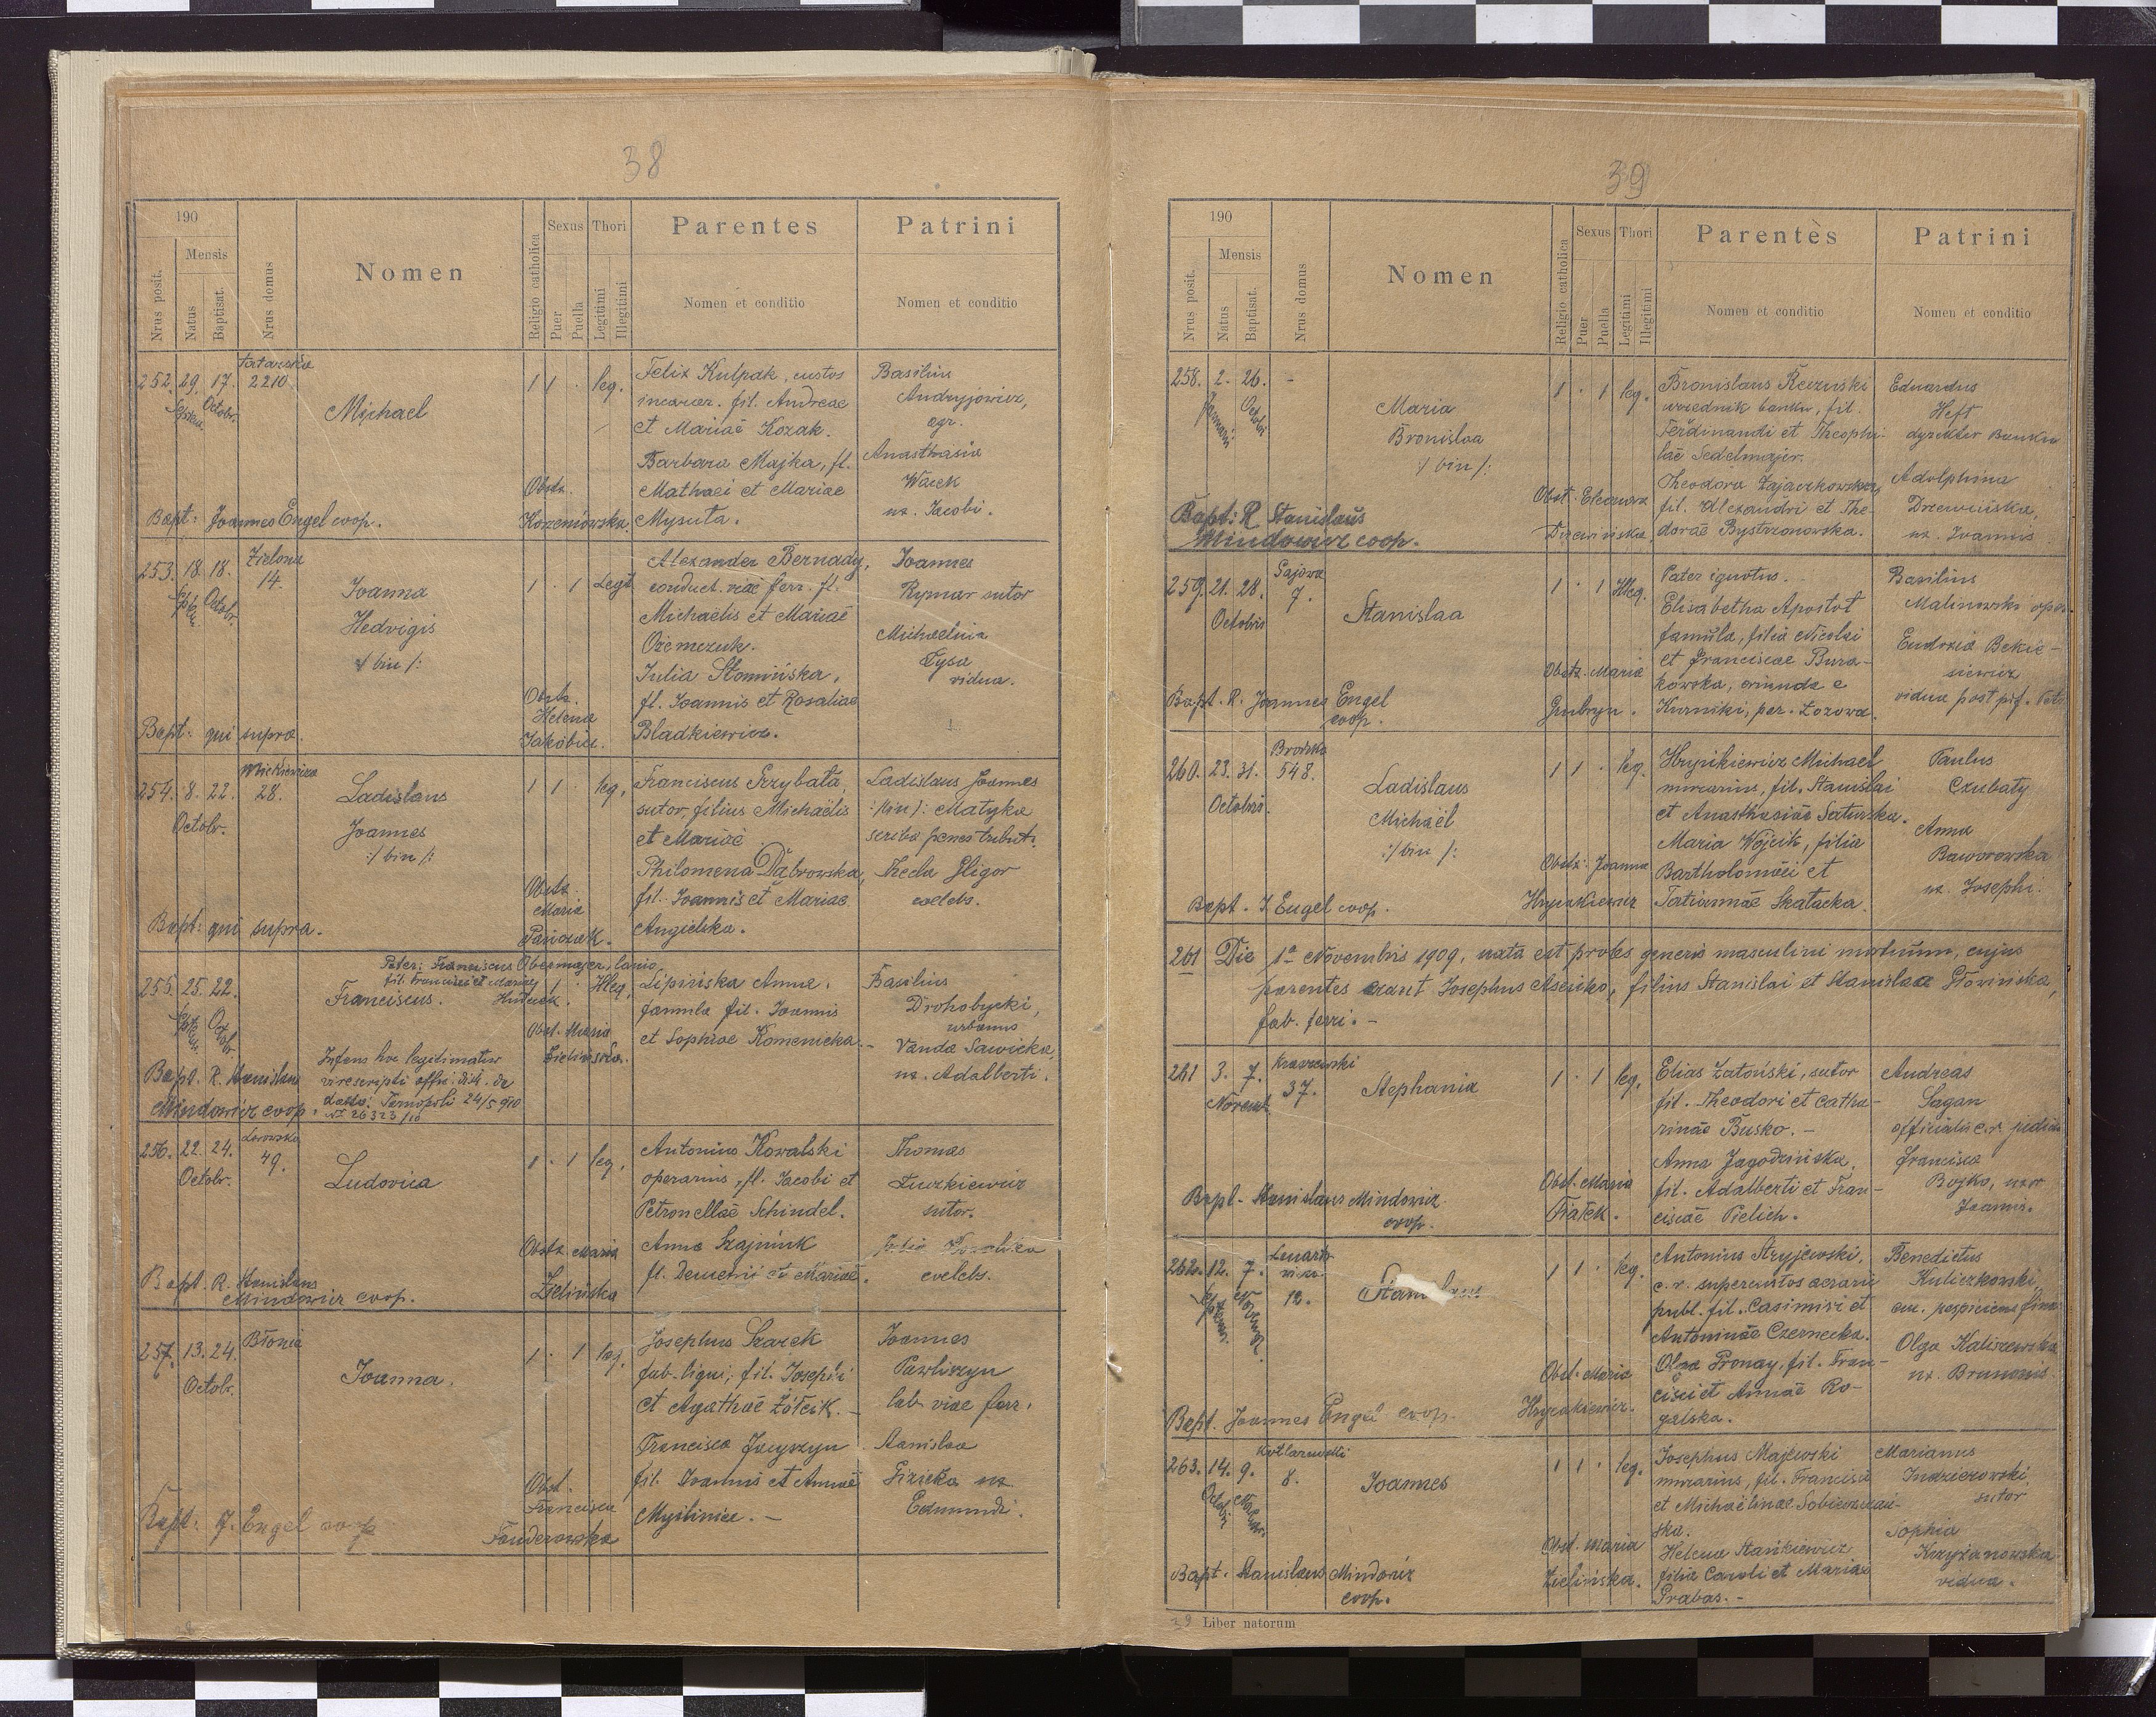 38
190
Nrus posit.
Mensis
Natus
Baptisat.
Nrus domus
Nomen
Religio catholica
Sexus
Puer
Puella
Thori
Legitimi
Illegitimi
Parentes
Nomen et conditio
Patrini
Nomen et conditio
252. 29. 17. 2210.
Octobr.
Michael
1 1 · leg.
Felix Kulpak, custos
incarcer. fil. Andreae
et Mariae Kozak.
Barbara Majka, fl.
Mathaei et Mariae
Mysuta.
Basilius
Andryjowicz,
agr.
Anasthasia
Wacek
ux. Jacobi.
Obstx.
Korzeniowska
Bapt: Joannes Engel coop.
253. 18. 18. Zielona
14.
Octobr.
Joanna
Hedvigis
:/ bin /:
1 · 1 Legit
Alexander Bernady,
conduct. viae ferr. fl.
Michaelis et Mariae
Julia Słomińska,
fl. Joannis et Rosaliae
Bladkiewicz.
Joannes
Rymar sutor
Michaelina
Tysa
vidua.
Obstx.
Helena
Bapt: qui supra.
254. 8. 22. Mickiewicza
28.
Octobr.
Ladislaus
Joannes
:/ bin /:
1 1 · leg.
Franciscus Grzybała,
sutor, filius Michaelis
et Mariae
Philomena Dąbrowska,
fil. Joannis et Mariae
Angielska.
Ladislaus Joannes
:/bin/: Matyka
scriba penes tribut.
Thecla Gligor
coelebs.
Obstx.
Maria
Pańczak.
Bapt: qui supra.
Pater: Franciscus Obermajer, lanio,
fil. Francisci et Mariae
255. 25. 22.
Franciscus.
Illeg.
Lipińska Anna,
famula fil. Joannis
et Sophiae Komenicka.
Basilius
Drohobycki,
urbanus
Vanda Sawicka,
ux. Adalberti.
Obst. Maria
Zielińska.
Infans hic legitimatur
Tarnopoli 24/5 910
№ 26323/10
Bapt. R. Stanislaus
Mindowicz coop.
256. 22. 24.
49.
Octobr.
Ludovica
1 · 1 leg.
Antonius Kowalski
operarius, fl. Jacobi et
Petronellae Schindel.
Anna Szajniuk
fl. Demetrii et Mariae.
Thomas
Łuczkiewicz
sutor.
coelebs.
Obstx. Maria
Zielińska
Bapt. R. Stanislaus
Mindowicz coop.
257. 13. 24. Błonie
Octobr.
Joanna.
1 · 1 leg.
Josephus Szarek
fab. ligni, fil. Josephi
et Agathae Żółcik.
Francisca Jacyszyn
fil. Joannis et Annae
Myślinice. -
Joannes
Pawliszyn
lab. viae ferr.
Stanislaa
Firicka ux
Edmundi.
Obst.
Francisca
Fenderowska
Bapt: J. Engel coop
39
190
Nrus posit.
Mensis
Natus
Baptisat.
Nrus domus
Nomen
Religio catholica
Sexus
Puer
Puella
Thori
Legitimi
Illegitimi
Parentes
Nomen et conditio
Patrini
Nomen et conditio
258. 2. 26. -
Maria
Bronislaa
:/ bin /:
1 · 1 leg.
Bronislaus
urzędnik banku, fil.
Ferdinandi et Theophi-
lae Sedelmajer.
Theodora Zajaczkowska,
fil. Alexandri et The-
dorae Bystrzonowska.
Eduardus
Heft
dyrektor Banku
Adolphina
ux. Joannis
Obst. Eleonora
Bapt: R. Stanislaus
Mindowicz coop.
259. 21. 28.
7.
Octobris
Stanislaa
1 · 1 Illeg.
Pater ignotus.
Elisabetha Apostoł
famula, filia Nicolai
et Franciscae Bura-
kowska, oriunda e
Kurniki, par. Łozowa.
Basilius
Malinowski oper.
Eudoxia Bekie-
siewicz
Obstx. Maria
Bapt. R. Joannes Engel
coop.
260. 23. 31.
548.
Octobris.
Ladislaus
Michaël
:/ bin /:
1 1 · leg.
Hrynkiewicz Michael
murarius, fil. Stanislai
et Anasthasiae Saturska.
Maria Wójcik, filia
Bartholomaei et
Tatiannae Skałacka.
Paulus
Czubaty
Anna
Baworowska
ux. Josephi.
Obstx: Joanna
Hrynkiewicz
Bapt. J. Engel coop.
261 Die 1ª Novembris 1909, nata est proles generis masculini mortuum, cujus
parentes erant Josephus filius Stanislai et Stanislaa Słowińska,
fab. ferri. -
261 3. 7. Kraszewski
37.
Novemb.
Stephania
1 · 1 leg.
Elias Zatoński, sutor
fil. Theodori et Catha-
rinae Busko. -
Anna Jagodzińska,
fil. Adalberti et Fran-
ciscae Pielich.
Andreas
Sagan
Francisca
Bojko, uxor
Joannis.
Obst. Maria
Bapt. Stanislaus Mindowicz
coop.
262. 12. 7.
12.
1 1 · leg.
Antonius Stryjewski,
c.r. supercustos aerarii
publ. fil. Casimiri et
Antoninae Czernecka.
Olga Pronay, fil. Fran-
cisci et Annae Ro-
galska.
Benedictus
Kuliczkowski
Olga Kaliszewska
ux. Brunonis
Obst. Maria
Bapt. Joannes Engel coop.
263. 14. 9.
8.
Joannes
1 1 · leg.
Josephus Majewski
murarius, fil. Francisci
et Michaëlinae
ska.
Helena Stańkiewicz
filia Caroli et Mariae
Grabas. -
Marianus
sutor
Sophia
Krzyżanowska
vidua.
Obst. Maria
Zielińska.
Bapt. Stanislaus Mindowicz
coop.
39 Liber natorum